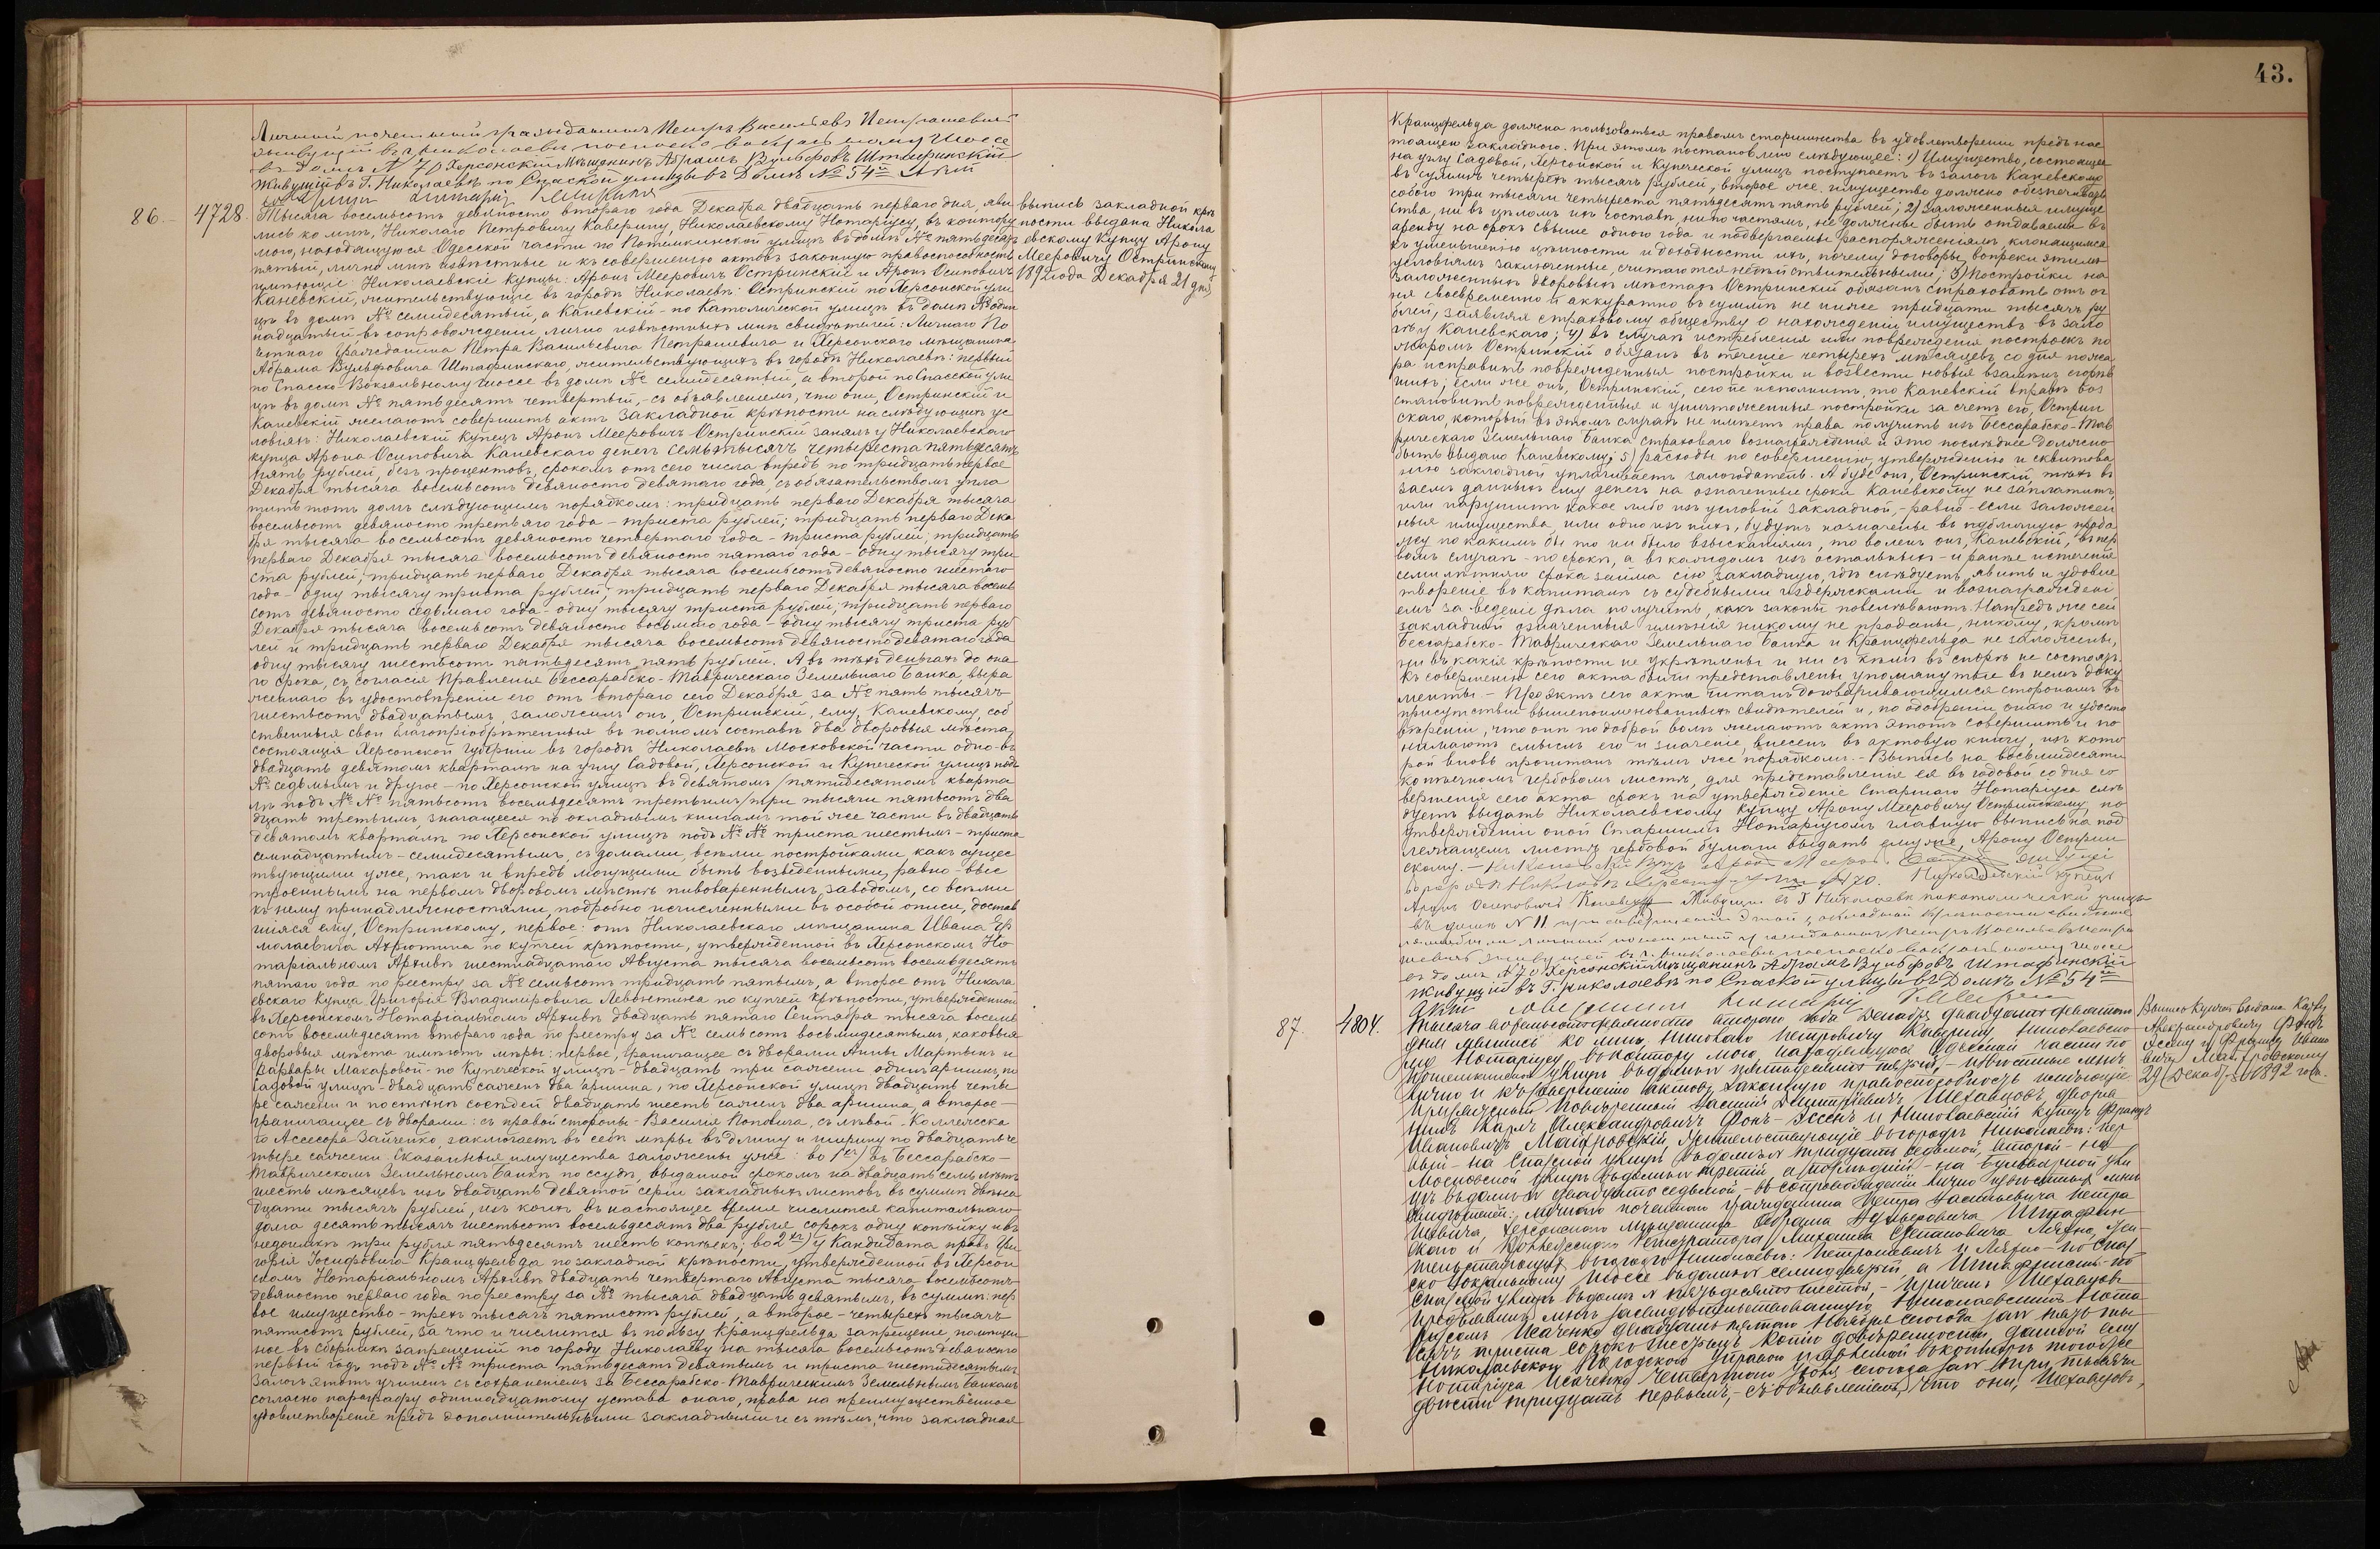 43.
Личный почетный гражданинъ Петръ Васильевъ Петрашевичъ
живущій въ г. Николаевѣ по Спасско вокзальному шоссе
въ домѣ № 70 Херсонскій Мѣщанинъ Абрамъ Вульфовъ Штафринскій
Живущій въ Г. Николаевѣ по Спаской улицы въ Домѣ № 54й
86. 4728. Тысяча восемьсотъ девяносто втораго года Декабря двадцать перваго дня, яви
лись ко мнѣ, Николаю Петровичу Каверину, Николаевскому Нотаріусу, въ контору
мою, находящуюся Одесской части по Потемкинской улицѣ въ домѣ № пятьдесятъ
пятый, лично мнѣ извѣстные и къ совершенію актовъ законную правоспособность
имѣющіе: Николаевскіе купцы: Аронъ Мееровичъ Остринскій и Аронъ Осиповичъ
Каневскій, жительствующіе въ городѣ Николаевѣ: Остринскій по Херсонской ули
цѣ въ домѣ № семидесятый, а Каневскій - по Католической улицѣ въ домѣ № один
надцатый, въ сопровожденіи лично извѣстныхъ мнѣ свидѣтелей: Личнаго По
четнаго Гражданина Петра Васильевича Петрашевича и Херсонскаго мѣщанина
Абрама Вульфовича Штафринскаго, жительствующихъ въ городѣ Николаевѣ: первый
по Спасско-Вокзальному шоссе въ домѣ № семидесятый, а второй по Спасской ули
цѣ въ домѣ № пятьдесятъ четвертый, - съ объявленіемъ, что они, Остринскій и
Каневскій желаютъ совершить актъ закладной крѣпости на слѣдующихъ ус
ловіяхъ: Николаевскій купецъ Аронъ Мееровичъ Остринскій занялъ у Николаевскаго
купца Арона Осиповича Каневскаго денегъ семь тысячъ четыреста пятьдесятъ
пять рублей, безъ процентовъ, срокомъ отъ сего числа впредь по тридцать первое
Декабря тысяча восемьсотъ девяносто девятаго года, съ обязательствомъ упла
тить тотъ долгъ слѣдующимъ порядкомъ: тридцать перваго Декабря тысяча
восемьсотъ девяносто третьяго года - триста рублей; тридцать перваго Дека
бря тысяча восемьсотъ девяносто четвертаго года - триста рублей; тридцать
перваго Декабря тысяча восемьсотъ девяносто пятаго года - одну тысячу три
ста рублей; тридцать перваго Декабря тысяча восемьсотъ девяносто шестаго
года - одну тысячу триста рублей; тридцать перваго Декабря тысяча восемь
сотъ девяносто седьмаго года - одну тысячу триста рублей; тридцать перваго
Декабря тысяча восемьсотъ девяносто восьмаго года - одну тысячу триста руб
лей и тридцать перваго Декабря тысяча восемьсотъ девяносто девятаго года
одну тысячу шестьсотъ пятьдесятъ пять рублей. А въ тѣхъ деньгахъ до она
го срока, съ согласія Правленія Бессарабско-Таврическаго Земельнаго Банка, выра
женнаго въ удостовѣреніи его отъ втораго сего Декабря за № пять тысячъ
шестьсотъ двадцатымъ, заложилъ онъ, Остринскій, ему, Каневскому, соб
ственныя свои благопріобрѣтенныя въ полномъ составѣ два дворовыя мѣста,
состоящія Херсонской губерніи въ городѣ Николаевѣ Московской части одно въ
двадцать девятомъ кварталѣ на углу Садовой, Херсонской и Купеческой улицъ подъ
№ седьмымъ и другое - по Херсонской улицѣ въ девятомъ/пятидесятомъ кварта
лѣ подъ №№ пятьсотъ восемьдесятъ третьимъ/три тысячи пятьсотъ два
дцать третьимъ, значащееся по окладнымъ книгамъ той же части въ двадцать
девятомъ кварталѣ по Херсонской улицѣ подъ №№ триста шестымъ - триста
семнадцатымъ - семидесятымъ, съ домами, всѣми постройками какъ сущес
твующими уже, такъ и впредь могущими быть возведенными, равно - выс
троеннымъ на первомъ дворовомъ мѣстѣ пивовареннымъ заводомъ, со всѣми
къ нему принадлежностями, подробно исчисленными въ особой описи, достав
шіяся ему, Остринскому, первое: отъ Николаевскаго мѣщанина Ивана Ер
молаевича Ахрютина по купчей крѣпости, утвержденной въ Херсонскомъ Но
таріальномъ Архивѣ шестнадцатаго Августа тысяча восемьсотъ восемьдесятъ
пятаго года по реестру за № семьсотъ тридцать пятымъ, а второе отъ Никола
евскаго купца Григорія Владимировича Левонтина по купчей крѣпости, утвержденной
въ Херсонскомъ Нотаріальномъ Архивѣ двадцать пятаго Сентября тысяча восемь
сотъ восемьдесятъ втораго года по реестру за № семьсотъ восьмидесятымъ, каковыя
дворовыя мѣста имѣютъ мѣры: первое, граничащее съ дворами Анны Мартынъ и
Варвары Макаровой - по Купеческой улицѣ - двадцать три сажени одинъ аршинъ, по
Садовой улицѣ - двадцать саженъ два аршина, по Херсонской улицѣ двадцать четы
ре сажени и по стѣнѣ сосѣдей двадцать шесть саженъ два аршина, а второе -
граничащее съ дворами: съ правой стороны - Василія Поповича, съ лѣвой - Коллежска
го Ассесора Зайченко, заключаетъ въ себѣ мѣры въ длину и ширину по двадцать че
тыре сажени. Сказанныя имущества заложены уже: во 1хъ) въ Бессарабско-
Таврическомъ Земельномъ Банкѣ по ссудѣ, выданной срокомъ на двадцать семь лѣтъ
шесть мѣсяцевъ изъ двадцать девятой серіи закладныхъ листовъ въ суммѣ двѣна
дцати тысячъ рублей, изъ коихъ въ настоящее время числится капитальнаго
долга десять тысячъ шестьсотъ восемьдесятъ два рубля сорокъ одну копѣйку и въ
недоимкѣ три рубля пятьдесятъ шесть копѣекъ; во 2хъ) у Кандидата правъ Гри
горія Іосифовича Кранцфельда по закладной крѣпости, утвержденной въ Херсон
скомъ Нотаріальномъ Архивѣ двадцать четвертаго Августа тысяча восемьсотъ
девяносто перваго года по реестру за № тысяча двадцать девятымъ, въ суммѣ: пер
вое имущество - трехъ тысячъ пятисотъ рублей, а второе - четырехъ тысячъ
пятисотъ рублей, за что и числится въ пользу Кранцфельда запрещеніе, помѣщен
ное въ сборникѣ запрещеній по городу Николаеву на тысяча восемьсотъ девяносто
первый годъ подъ №№ триста пятьдесятъ девятымъ и триста шестидесятымъ.
Залогъ этотъ учиненъ съ сохраненіемъ за Бессарабско-Таврическимъ Земельнымъ Банкомъ
согласно параграфу одиннадцатому устава онаго, права на преимущественное
удовлетвореніе предъ дополнительными закладными и съ тѣмъ, что закладная
выпись закладной крѣ
пости выдана Никола
евскому купцу Арону
Мееровичу Остринскому
1892 года Декабря 21 дня
Кранцфельда должна пользоваться правомъ старшинства въ удовлетвореніи предъ нас
тоящею закладною. При этомъ постановлено слѣдующее: 1) Имущество, состоящее
на углу Садовой, Херсонской и Купеческой улицъ поступаетъ въ залогъ Каневскому
въ суммѣ четырехъ тысячъ рублей, второе же имущество должно обезпечивать
собою три тысячи четыреста пятьдесятъ пять рублей; 2) Заложенныя имуще
ства, ни въ цѣломъ ихъ составѣ, ни по частямъ, не должны быть отдаваемы въ
аренду на срокъ свыше одного года и подвергаемы распоряженіямъ, клонящимся
къ уменьшенію цѣнности и доходности ихъ, почему договоры, вопреки этимъ
условіямъ заключенные, считаются недѣйствительными; 3) Постройки на
заложенныхъ дворовыхъ мѣстахъ Остринскій обязанъ страховать отъ ог
ня своевременно и аккуратно въ суммѣ не ниже тридцати тысячъ ру
блей, заявляя страховому обществу о нахожденіи имуществъ въ зало
гѣ у Каневскаго; 4) въ случаѣ истребленія или поврежденія построекъ по
жаромъ Остринскій обязанъ въ теченіе четырехъ мѣсяцевъ со дня пожа
ра исправить поврежденныя постройки и возвести новыя взамѣнъ сгорѣв
шихъ; если же онъ, Остринскій, сего не исполнитъ, то Каневскій вправѣ воз
становить поврежденныя и уничтоженныя постройки за счетъ его, Острин
скаго, который въ этомъ случаѣ не имѣетъ права получить изъ Бессарабско-Тав
рическаго Земельнаго Банка страховаго вознагражденія и это послѣднее должно
быть выдано Каневскому; 5) расходы по совершенію, утвержденію и сквитова
нію закладной уплачиваетъ залогодатель. А буде онъ, Остринскій, тѣхъ въ
заемъ данныхъ ему денегъ на означенные сроки Каневскому не заплатитъ,
или нарушитъ какое либо изъ условій закладной, - равно - если заложен
ныя имущества, или одно изъ нихъ, будутъ назначены въ публичную прода
жу по какимъ бы то ни было взысканіямъ, то воленъ онъ, Каневскій, въ пер
вомъ случаѣ - по срокѣ, а въ каждомъ изъ остальныхъ - и ранѣе истеченія
семилѣтняго срока займа сію закладную, гдѣ слѣдуетъ, явить и удовле
твореніе въ капиталѣ съ судебными издержками и вознагражденi
емъ за веденіе дѣла получить, какъ законы повелѣваютъ. Напредъ же сей
закладной означенныя имѣнія никому не проданы, никому, кромѣ
Бессарабско-Таврическаго Земельнаго Банка и Кранцфельда не заложены,
ни въ какія крѣпости не укрѣплены и ни съ кѣмъ въ спорѣ не состоятъ.
Къ совершенію сего акта были представлены упомянутые въ немъ доку
менты. - Проэктъ сего акта читанъ договаривающимся сторонамъ въ
присутствіи вышепоименованныхъ свидѣтелей и, по одобреніи онаго и удосто
вѣреніи, что они по доброй волѣ желаютъ актъ этотъ совершить и по
нимаютъ смыслъ его и значеніе, внесенъ въ актовую книгу, изъ кото
рой вновь прочитанъ тѣмъ же порядкомъ. - Выпись на восьмидесяти
копѣечномъ гербовомъ листѣ, для представленія ея въ годовой со дня со
вершенія сего акта срокъ на утвержденіе Старшаго Нотаріуса слѣ
дуетъ выдать Николаевскому купцу Арону Мееровичу Остринскому, по
утвержденіи оной Старшимъ Нотаріусомъ главную выпись на под
лежащемъ листѣ гербовой бумаги выдать ему же, Арону Острин
скому. -
№ 70. Николаевскій купецъ
Аронъ Осиповичъ Каневскій Живущій въ Г Николаевѣ по католической улицѣ
въ домѣ № 11 при совершеніи этой закладной крѣпости свидѣтеле
мъ былъ личный почетный гражданинъ Петръ Васильевъ Петра
шевичъ живущій въ г. Николаевѣ по Спасско вокзальному шоссе
въ домѣ № 70 Херсонскій Мѣщанинъ Абрамъ Вульфовъ Штафринскій
живущій въ Г. Николаевѣ по Спаской улицы въ Домѣ № 54й
87. 4804. Тысяча восемьсотъ девяносто втораго года Декабря двадцать девятаго
дня явились ко мнѣ, Николаю Петровичу Каверину, Николаевско
му Нотаріусу, въ контору мою, находящуюся Одесской части по
Потемкинской улицѣ въ домѣ № пятьдесятъ пятый, - извѣстные мнѣ
лично и къ совершенію актовъ законную правоспособность имѣющіе
Присяжный Повѣренный Василій Дмитріевичъ Шехавцовъ, дворя
нинъ Карлъ Александровичъ Фонъ-Эссенъ и Николаевскій купецъ Францъ
Ивановичъ Майдровскій, жительствующіе въ городѣ Николаевѣ: пер
вый - на Спасской улицѣ въ домѣ № тридцать седьмой, второй - на
Московской улицѣ въ домѣ № третій, а послѣдній - на Бульварной ули
цѣ въ домѣ № двадцать седьмой - въ сопровожденіи лично извѣстныхъ мнѣ
свидѣтелей: личнаго почетнаго гражданина Петра Васильевича Петра
шевича, Херсонскаго мѣщанина Абрама Вульфовича Штафрин
скаго и Коллежскаго Регистратора Михаила Степановича Лягно, жи
тельствующихъ въ городѣ Николаевѣ: Петрашевичъ и Лягно - по Спас
ско вокзальному шоссе въ домѣ № семидесятый, а Штафринскій - по
Спасской улицѣ въ домѣ № пятьдесятъ шестой, - причемъ Шехавцовъ
предъявилъ мнѣ засвидѣтельствованную Николаевскимъ Нота
ріусомъ Исаченко двадцать пятаго Ноября сего года за № пять ты
сячъ триста сорокъ шестымъ копію довѣренности, данной ему
Николаевскою Городскою Управою и явленной въ конторѣ того же
Нотаріуса Исаченко четвертаго Іюня сего года за № три тысячи
двѣсти тридцать первымъ, - съ объявленіемъ, что они, Шехавцовъ,
Выпись купчей выдана Карлу
Александровичу Фонъ
Эссену и Францу Ивано
вичу Майдровскому
29 Декабря 1892 года.